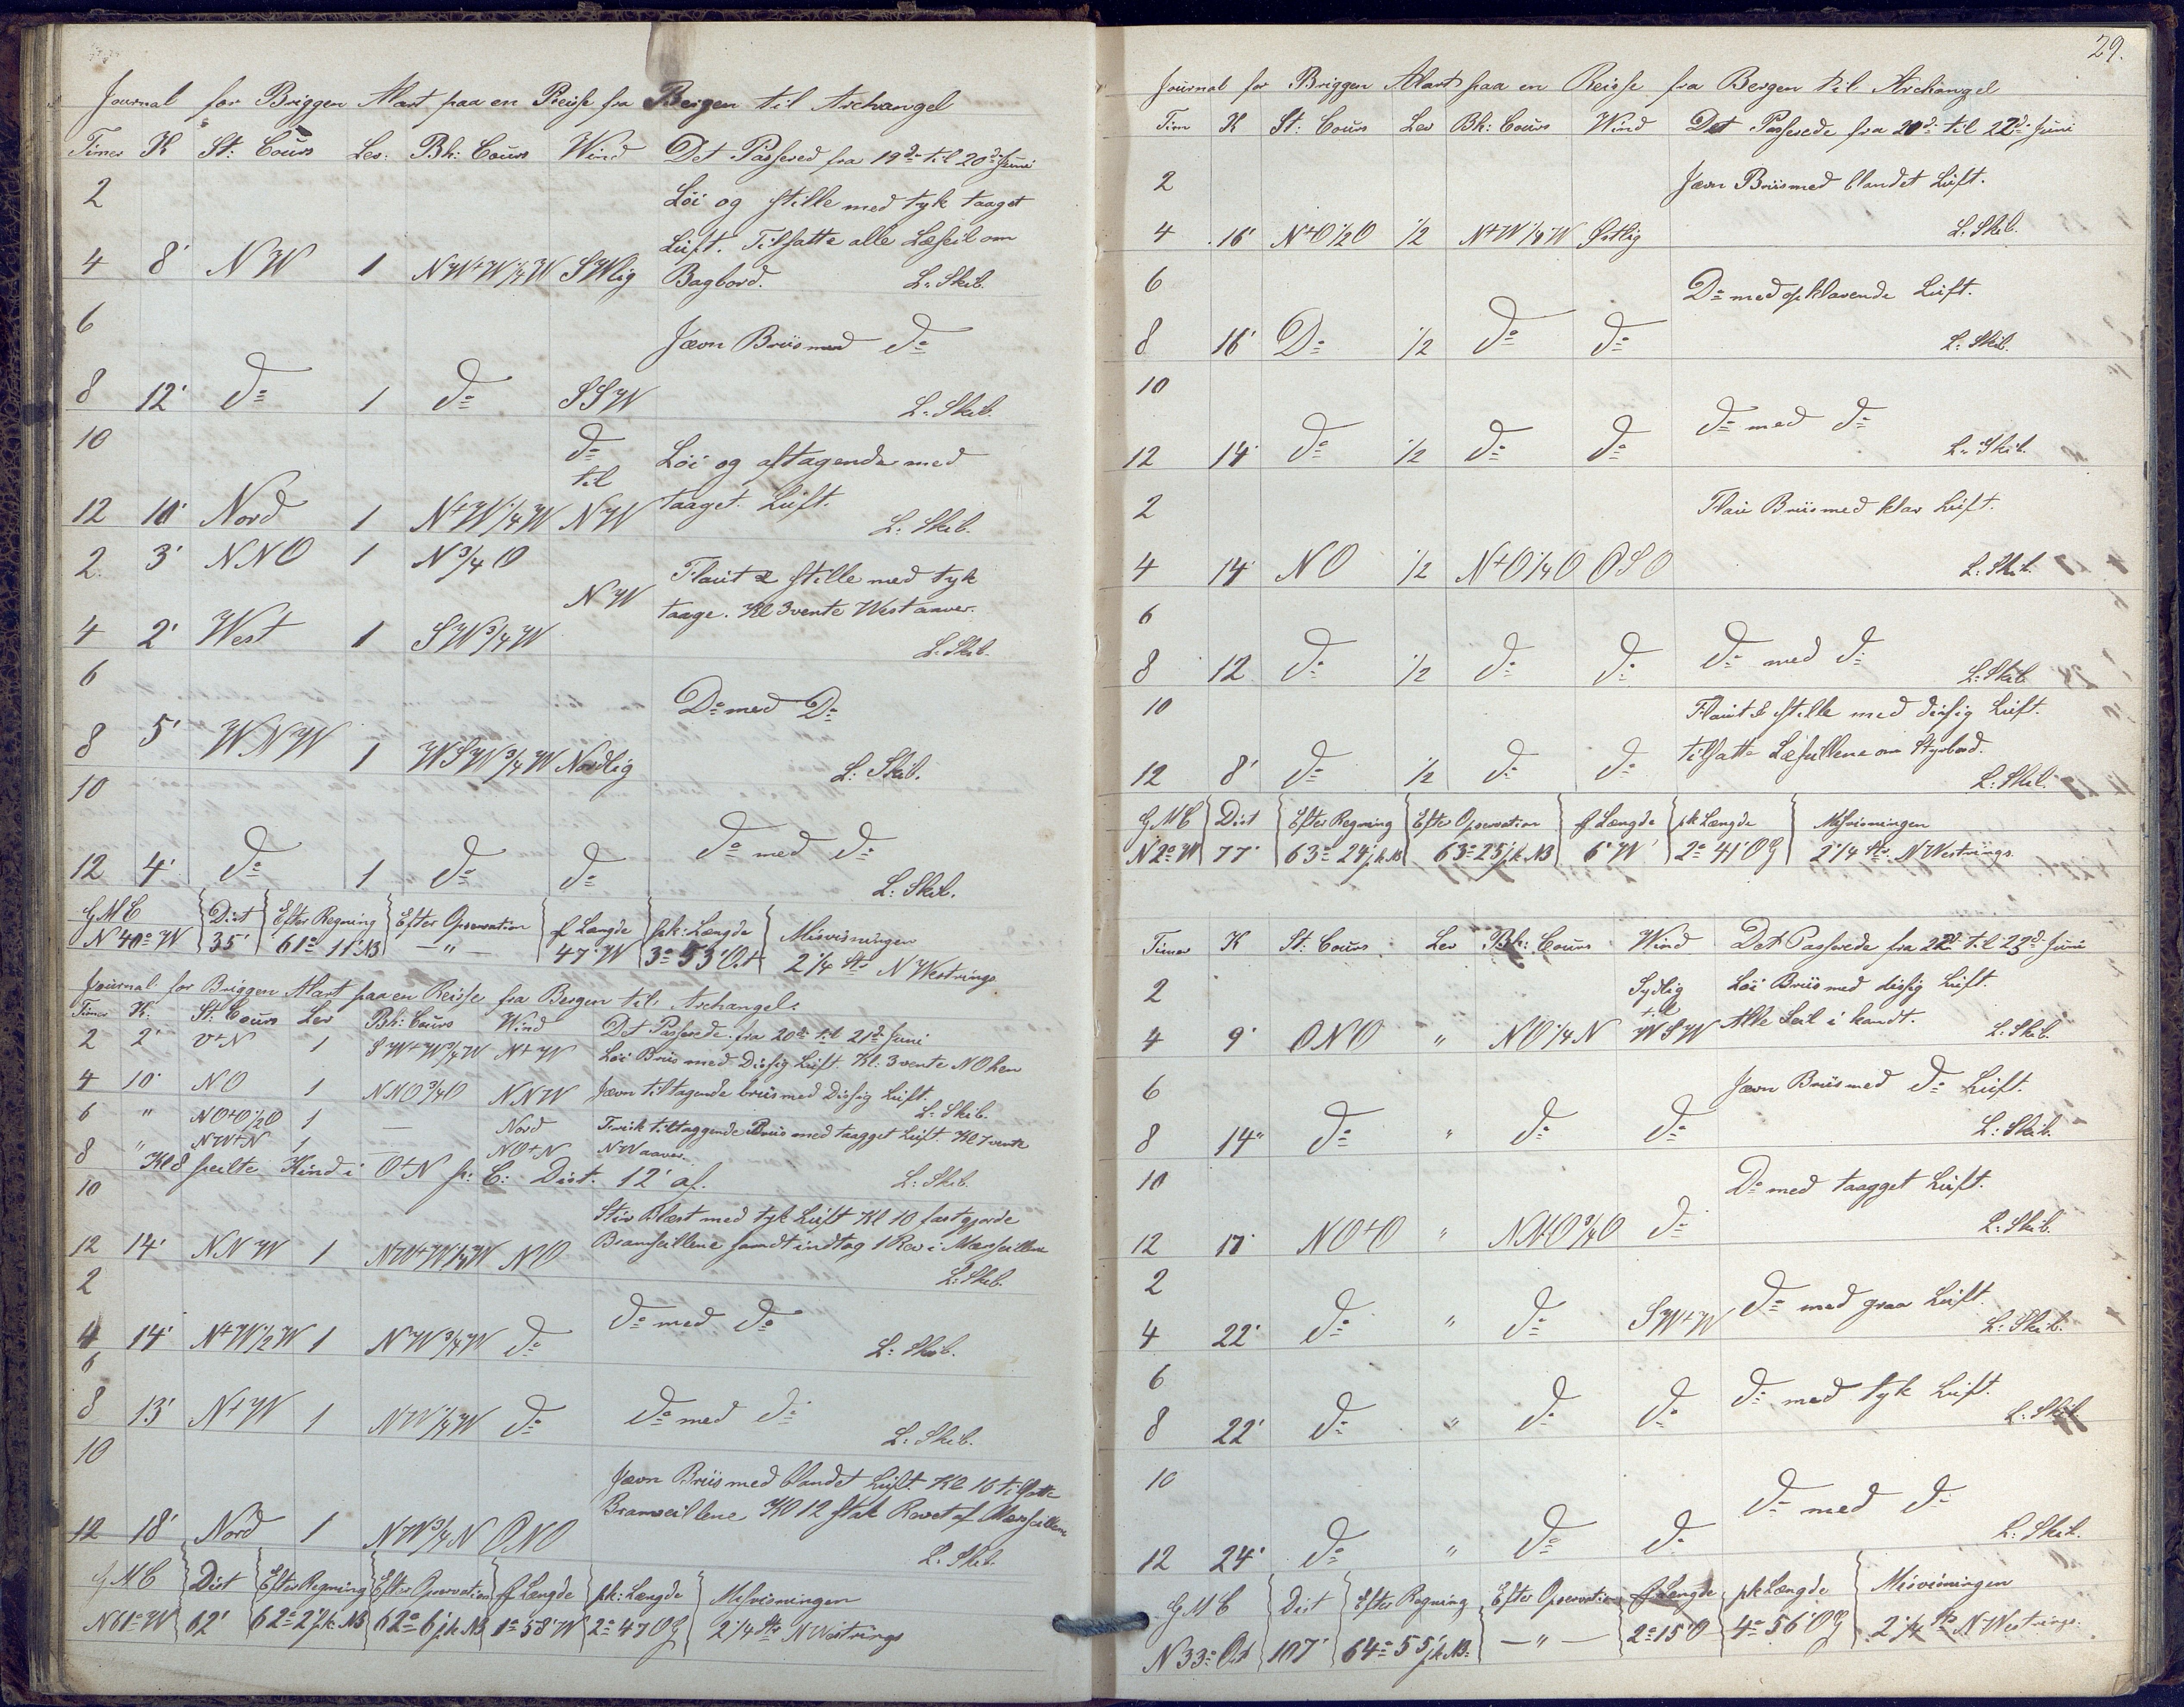 Journal for Briggen Alart paa en Reise fra Bergen til Archangel
Timer K St: Cours Lev: Bh: Cours Wind Det Passered fra 19de til 20de Juni
2 Löi og stille med tyk taaget
Luft. Tilsatte alle Læseil om
4 8' NW 1 NW+W 1/4 W SWlig Bagbord. L. Skib.
6 Jævn Briis med do
8 12' do 1 do SSW L. Skib.
10 do Löi og aftagende med
til
12 10' Nord 1 N+W 1/4 W NW taaget Luft. L. Skib.
2 3' NNO 1 N 3/4 O Flaut & stille med tyk
NW taage. Kl 3 vente West aaver.
4 2' West 1 SW 3/4 W L. Skib.
6 Do med Do
8 5' WNW 1 WSW 3/4 W Nordlig L: Skib.
10 do med do
12 4' do 1 do do L: Skib.
G M C Dist Efter Regning Efter Opservation f Længde pk: Længde Misvisningen
N 40° W 35' 61° 11' NB — " — 47' W 3° 53' Ost 2 1/4 Str N Westrings
Journal for Briggen Alart paa en Reisse fra Bergen til Archangel.
Timer K: St: Cours Lev Bh: Cours Wind Det Passerede fra 20de til 21de Juni
2 2' O+N 1 SW+W 3/4 W N+W Löi Briis med Dissig Luft. Kl: 3 vente NO hen
4 10' NO 1 NNO 3/4 O NNW Jævn tiltagende briis med Dissig Luft. L. Skib.
6 " NO+O 1/2 O 1 — Nord Frisk tiltaggende Briis med taagget Luft. Kl 7 vente
8 " NW+N 1 — NO+N NW aaver.
Kl 8 peilte Kind i O+N pr: C: Dist. 12' af. L: Skib.
10 Stiv Blæst med tyk Luft Kl 10 fastgjorde
12 14' NNW 1 NW+W 1/4 W NO Bramseillene samdt indtog 1 Rev i Mærseillene
2 L: Skib.
do med do
4 14' N+W 1/2 W 1 NW 3/4 W do L: Skib.
6
8 13' N+W 1 NW 1/4 W do do med do L: Skib.
10 Jævn Briis med blandet Luft. Kl 10 tilsatte
Bramseillene Kl 12 stak Revet af Mærseillene
12 18' Nord 1 NW 3/4 N ONO L. Skib.
G M C Dist Efter Regning Efter Opservation f Længde pk: Længde Misvisningen
N 61° W 62' 62° 2' pk NB 62° 6' pk NB 1° 58' W 2° 47 OG 2 1/4 Str N Westrings
29.
Journal for Briggen Alart paa en Reisse fra Bergen til Archangel
Tim K St: Cours Lev Bh: Cours Wind Det Passerede fra 21d til 22d Juni
2 Jævn Briis med blandet Luft.
4 16' N+O 1/2 O 1/2 N+W 1/4 W Östlig L. Skib.
6 Do med opklarende Luft.
8 16' Do 1/2 do do L: Skib.
10 do med do
12 14' do 1/2 do do L. Skib.
2 Flau Briis med klar Luft.
4 14' NO 1/2 N+O 1/4 O OSO L: Skib.
6 do med do
8 12 do 1/2 do do L: Skib.
10 Flaut & stille med disig Luft.
tilsatte Læseillene om Styrbord.
12 8' do 1/2 do do L: Skib.
G M C Dist Efter Regning Efter Opservation f Længde pk Længde Misvisningen
N 2° W 77' 63° 24' pk NB 63° 23' pk NB 6' W 2° 41' OG 2 1/4 Str. N Westrings.
Timer K St: Cours Lev Bh: Cours Wind Det Passerede fra 22d til 23d Juni
2 Sydlig Löi Briis med dissig Luft.
til
4 9' ONO " NO 1/4 N WSW Alle Seil i kandt. L: Skib.
6 Jævn Briis med do Luft.
8 14" do " do do L: Skib.
10 Do med taagget Luft.
12 17' NO+O " NNO 3/4 O do L: Skib.
2 do med graa Luft.
4 22' do " do SW+W L: Skib.
6 do med tyk Luft.
8 22' do " do do L: Skib
10 do med do
12 24' do " do do L: Skib.
G M C Dist Efter Regning Efter Opservation f Længde pk Længde Misvisningen
N 33° Ost 107' 64° 55' pk NB: — " — 2° 15' O 4° 56' OG 2 1/4 Str N Westrings.